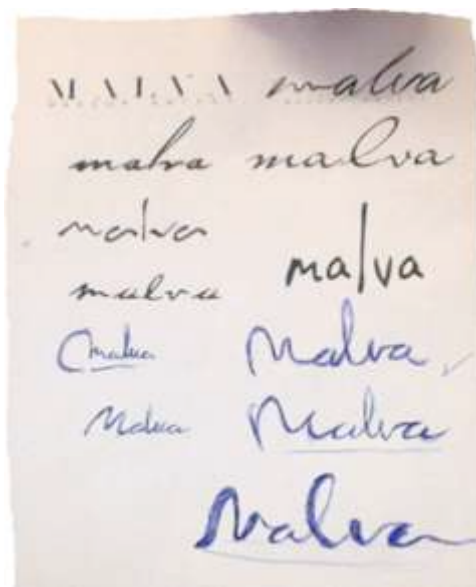 MALVA malva
malva malva
malva
malva
malva
malva Malva
Malva Malva
Malva